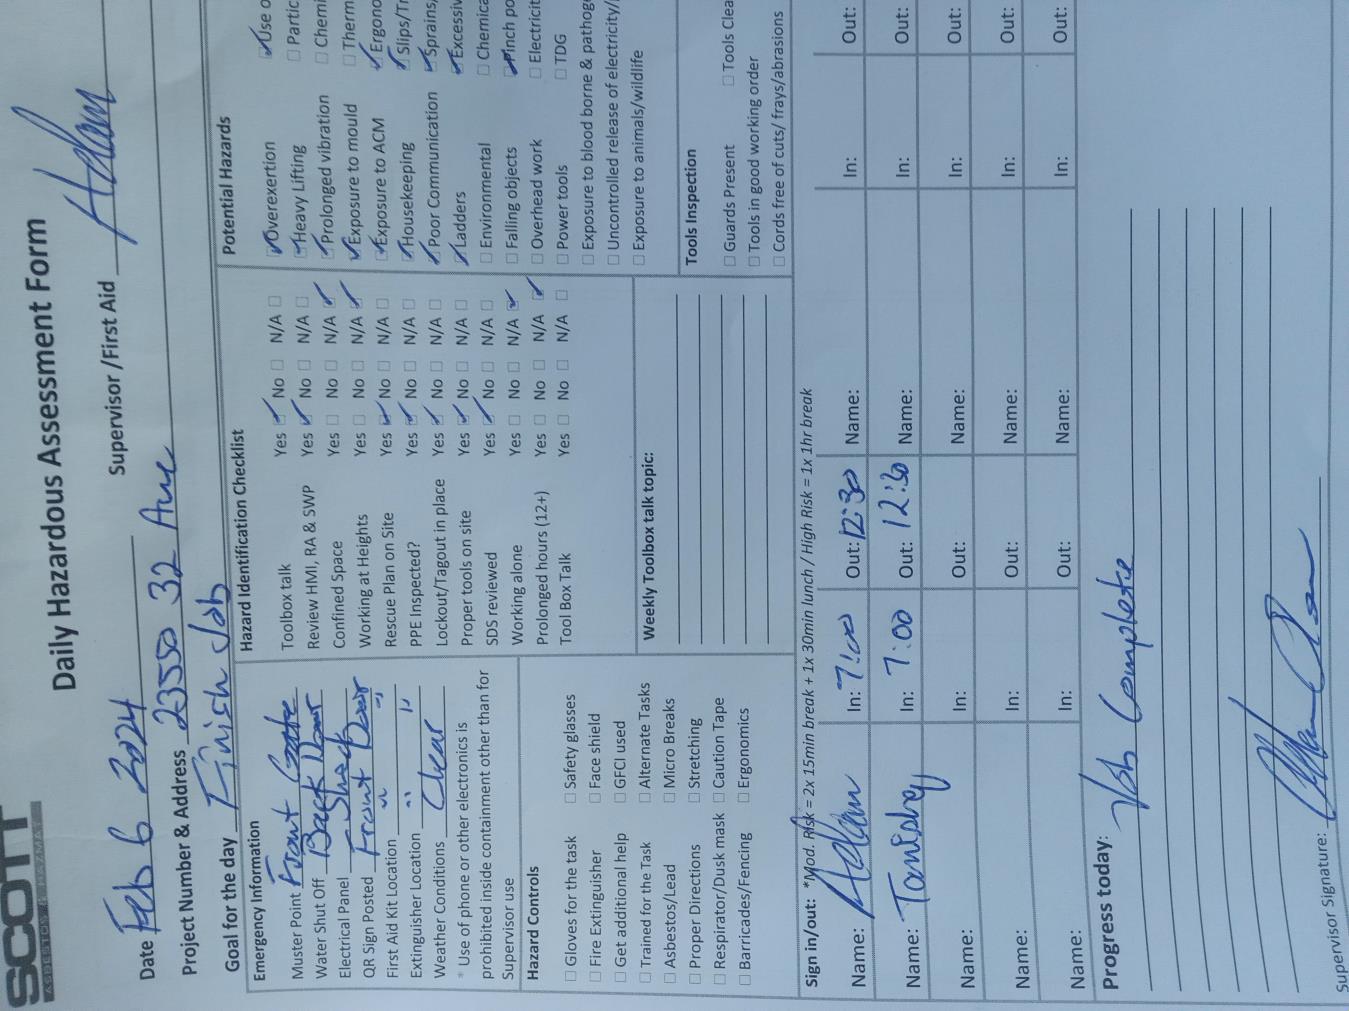 SCOTT
ASBESTOS & HAZMAT
Daily Hazardous Assessment Form
Date Feb 6 2024 Supervisor /First Aid Adam
Project Number & Address 2350 32 Ave
Goal for the day Finish Job
Emergency Information
Muster Point Front Gate
Water Shut Off Back Door
Electrical Panel
QR Sign Posted Front Door
First Aid Kit Location " "
Extinguisher Location " "
Weather Conditions Clear
* Use of phone or other electronics is
prohibited inside containment other than for
Supervisor use
Hazard Controls
☐ Gloves for the task ☐ Safety glasses
☐ Fire Extinguisher ☐ Face shield
☐ Get additional help ☐ GFCI used
☐ Trained for the Task ☐ Alternate Tasks
☐ Asbestos/Lead ☐ Micro Breaks
☐ Proper Directions ☐ Stretching
☐ Respirator/Dusk mask ☐ Caution Tape
☐ Barricades/Fencing ☐ Ergonomics
Hazard Identification Checklist
Toolbox talk Yes ☑ No ☐ N/A ☐
Review HMI, RA & SWP Yes ☑ No ☐ N/A ☐
Confined Space Yes ☐ No ☐ N/A ☑
Working at Heights Yes ☐ No ☐ N/A ☑
Rescue Plan on Site Yes ☑ No ☐ N/A ☐
PPE Inspected? Yes ☑ No ☐ N/A ☐
Lockout/Tagout in place Yes ☑ No ☐ N/A ☐
Proper tools on site Yes ☑ No ☐ N/A ☐
SDS reviewed Yes ☑ No ☐ N/A ☐
Working alone Yes ☐ No ☐ N/A ☑
Prolonged hours (12+) Yes ☐ No ☐ N/A ☑
Tool Box Talk Yes ☐ No ☐ N/A ☐
Weekly Toolbox talk topic:
Potential Hazards
☑ Overexertion ☑ Use o
☑ Heavy Lifting ☐ Partic
☑ Prolonged vibration ☐ Chemi
☑ Exposure to mould ☐ Therm
☑ Exposure to ACM ☑ Ergono
☑ Housekeeping ☑ Slips/Tr
☑ Poor Communication ☑ Sprains,
☑ Ladders ☑ Excessiv
☐ Environmental ☐ Chemica
☐ Falling objects ☑ Pinch po
☐ Overhead work ☐ Electricit
☐ Power tools ☐ TDG
☐ Exposure to blood borne & pathoge
☐ Uncontrolled release of electricity/
☐ Exposure to animals/wildlife
Tools Inspection
☐ Guards Present ☐ Tools Clea
☐ Tools in good working order
☐ Cords free of cuts/ frays/abrasions
Sign in/out: *Mod. Risk = 2x 15min break + 1x 30min lunch / High Risk = 1x 1hr break
Name: Adam In: 7:00 Out: 12:30 Name: In: Out:
Name: Tanishq In: 7:00 Out: 12:30 Name: In: Out:
Name: In: Out: Name: In: Out:
Name: In: Out: Name: In: Out:
Name: In: Out: Name: In: Out:
Progress today:
Job Complete
Supervisor Signature: